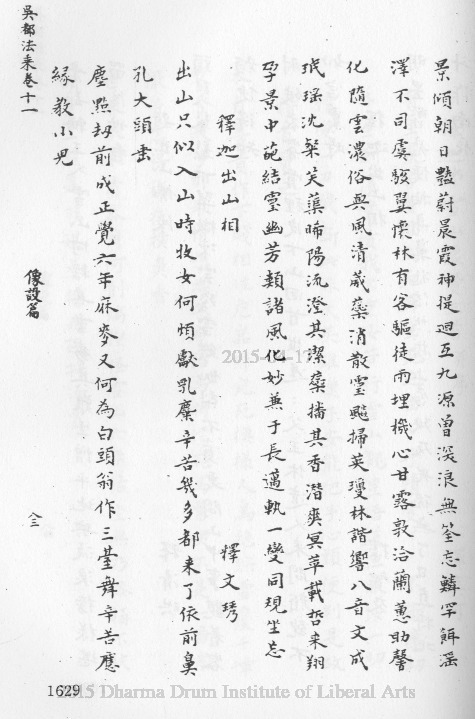 景傾朝日豔尉晨霞神提迴互九源曾深浪無筌忘鱗罕餌滛
澤不司虞駿翼懷林有客驅徒兩埋機心甘露敦洽蘭蕙助馨
化隨雲濃俗與風清葳蘂消散靈飈掃英瓊林諧響八音文成
珉瑶沈粲芙蕖晞陽流澄其潔蘂播其香潛爽冥萃載哲来翔
孕景中葩結靈幽芳類諸風化妙兼于長邁軌一變同規坐忘
釋迦出山相
釋文琇
出山只似入山時牧女何煩獻乳糜辛苦幾多都来了依前鼻
孔大頭垂
塵點刼前成正覺六年麻麥又何為白頭翁作三䑓舞辛苦應
緣教小兒
吳都法乘卷十一
像設篇
八三
2015
1629
2015 Dharma Drum Institute of Liberal Arts